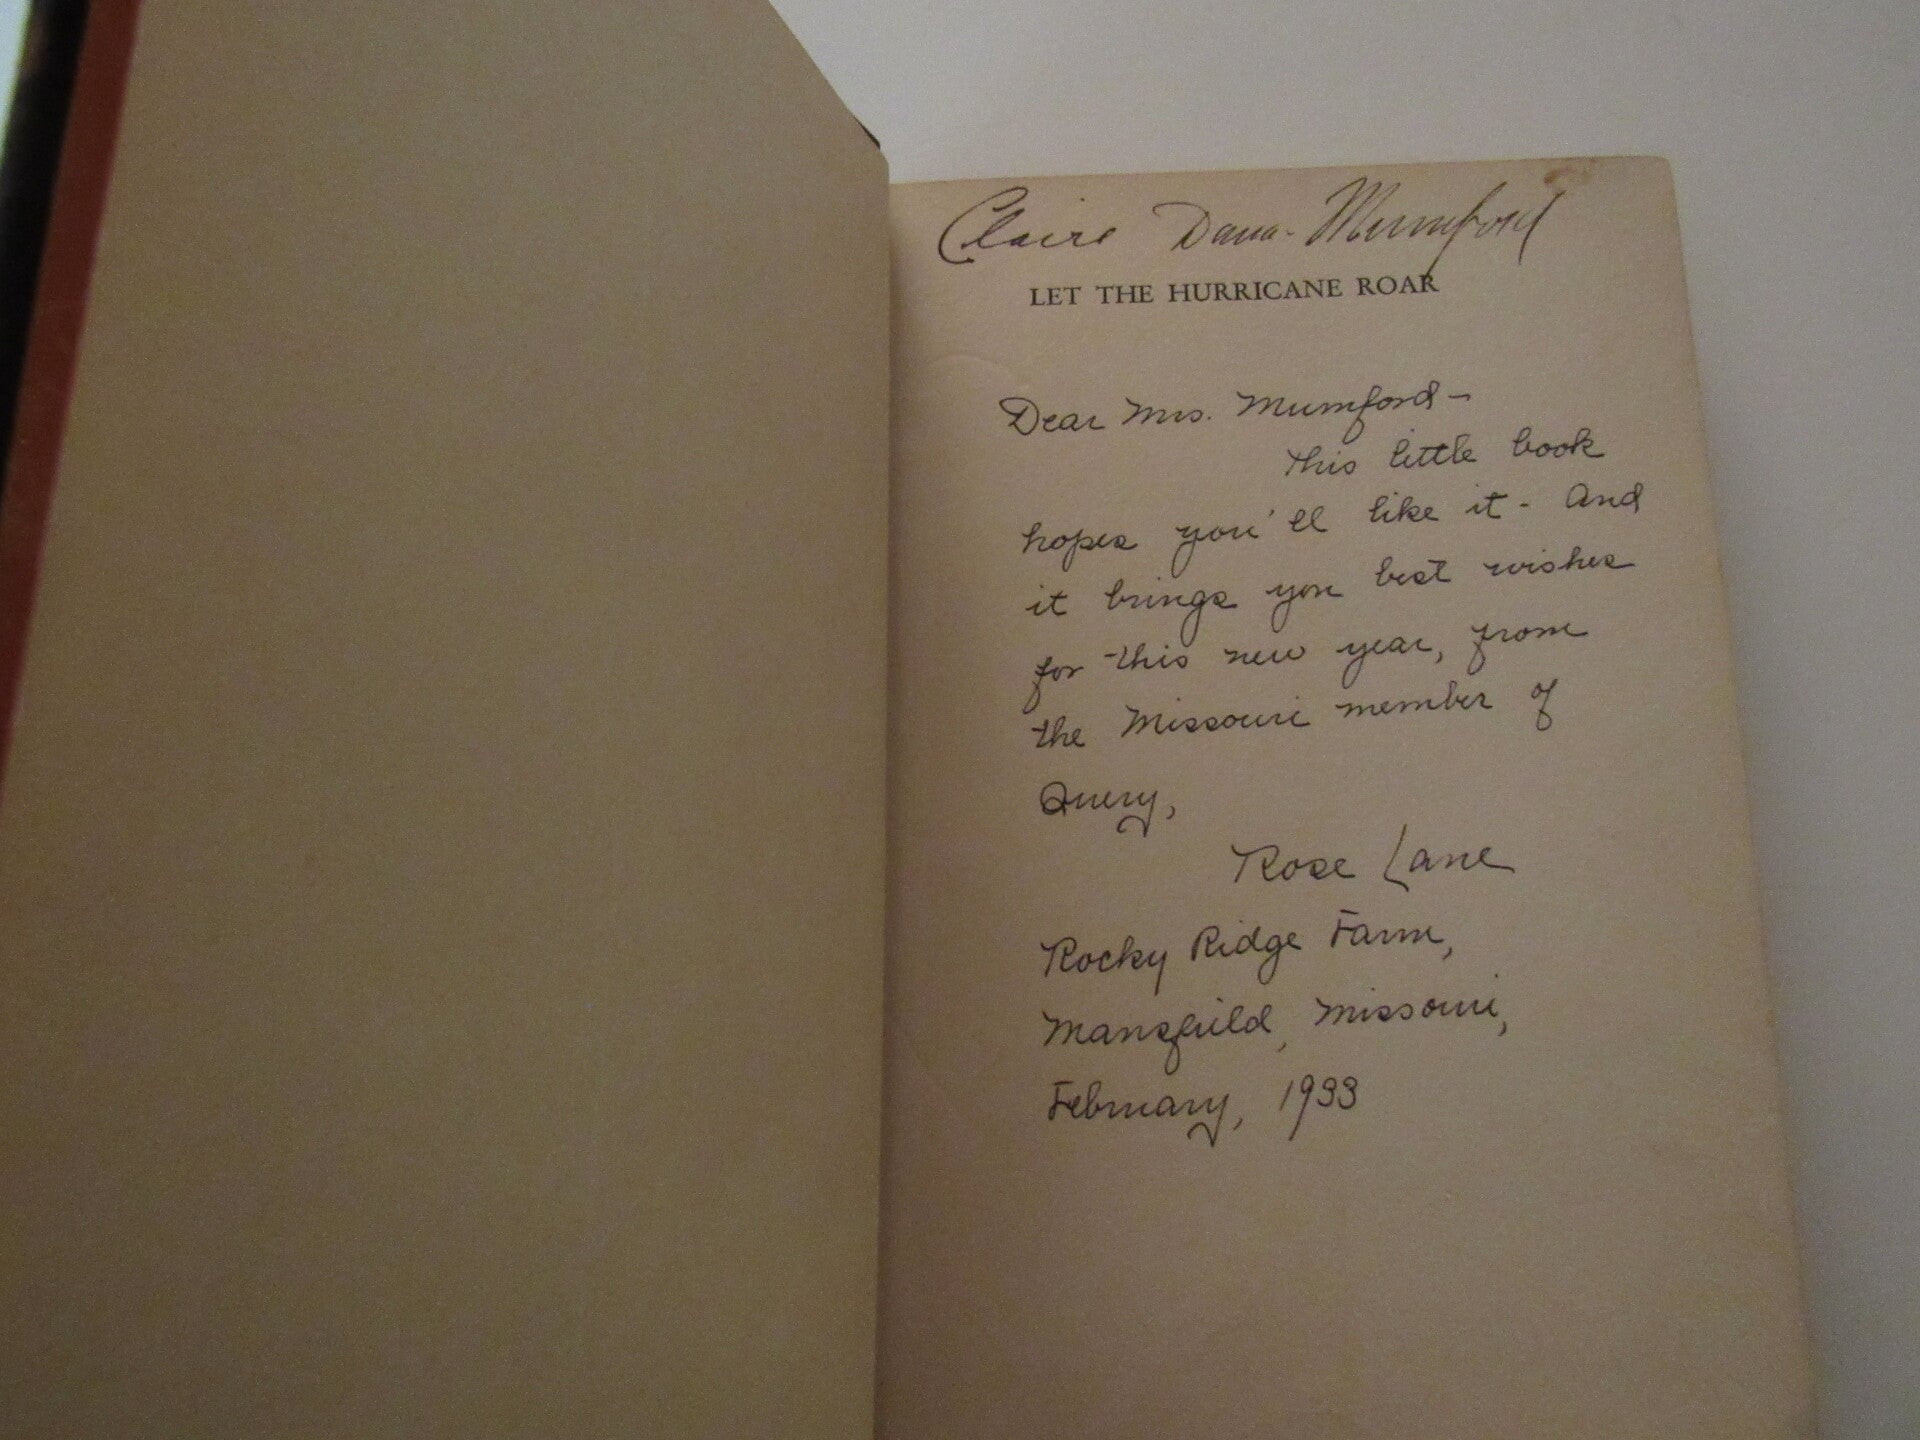 Claire Dana-Mumford
LET THE HURRICANE ROAR
Dear Mrs. Mumford-
This little book
hopes you'll like it - And
it brings you best wishes
for this new year, from
the Missouri member of
Query,
Rose Lane
Rocky Ridge Farm,
Mansfield, Missouri,
February, 1933